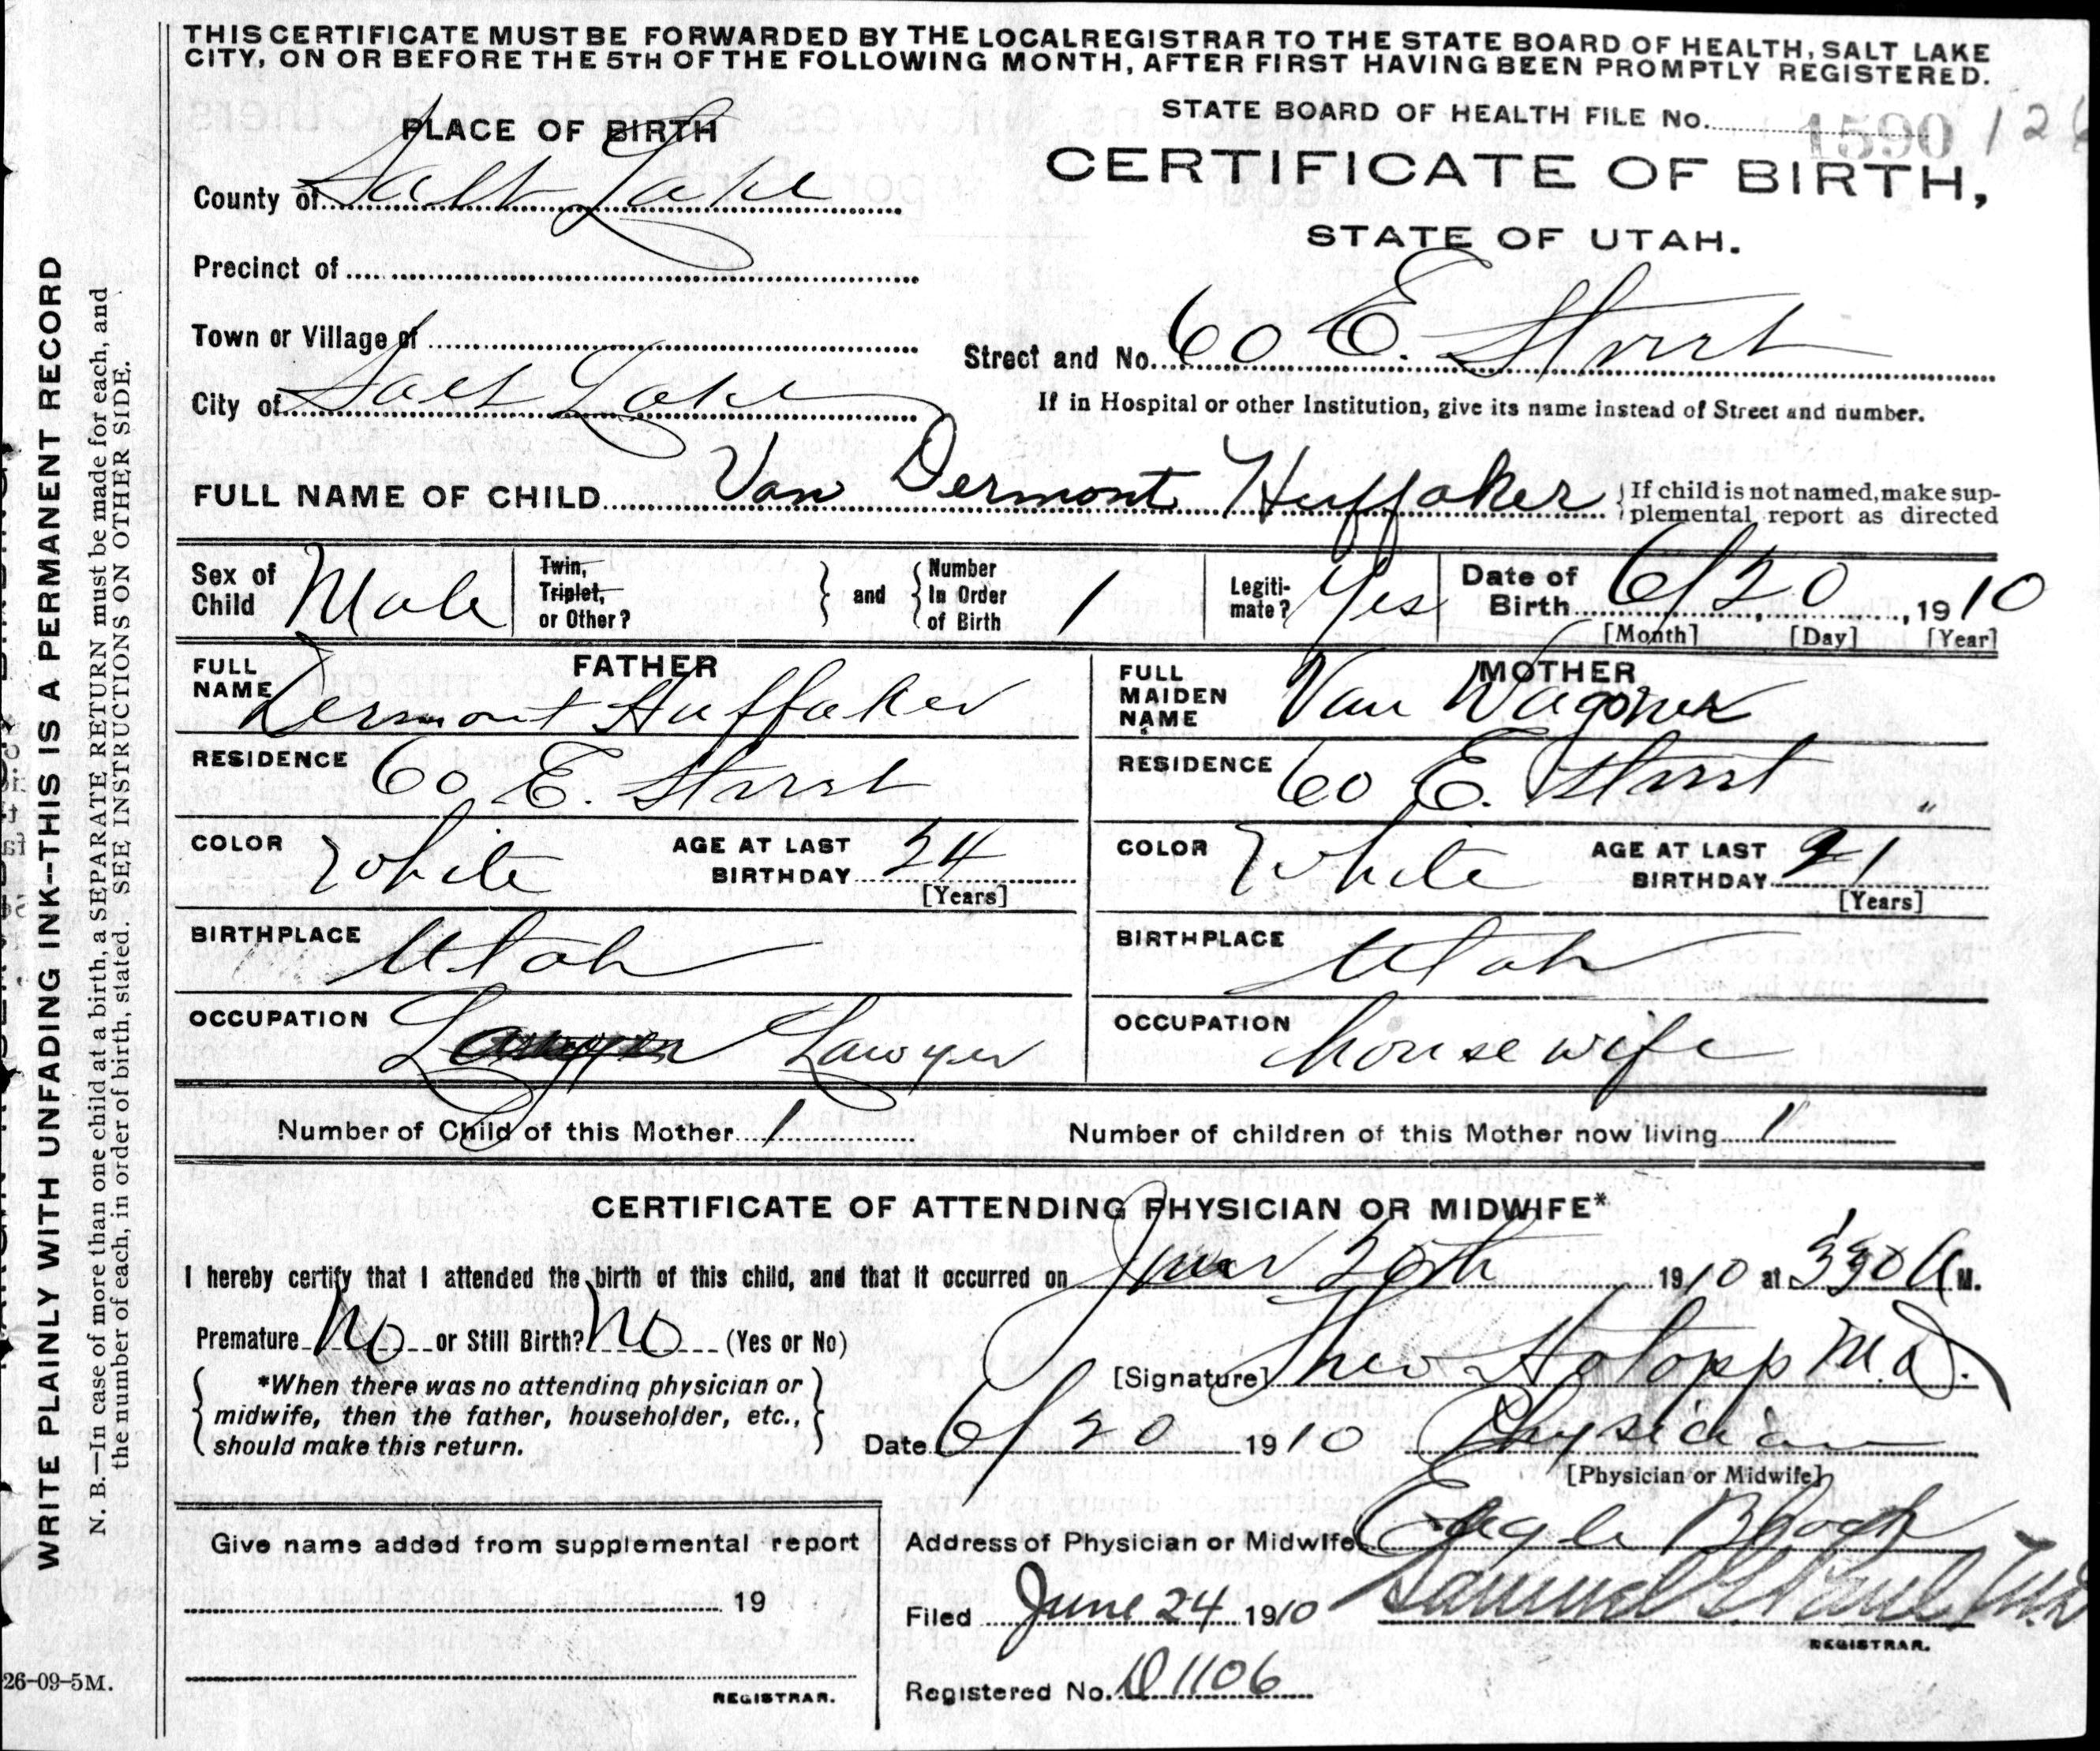 THIS CERTIFICATE MUST BE FORWARDED BY THE LOCAL REGISTRAR TO THE STATE BOARD OF HEALTH, SALT LAKE
CITY, ON OR BEFORE THE 5TH OF THE FOLLOWING MONTH, AFTER FIRST HAVING BEEN PROMPTLY REGISTERED.
STATE BOARD OF HEALTH FILE No. 1590 126
PLACE OF BIRTH
CERTIFICATE OF BIRTH,
STATE OF UTAH.
County of Salt Lake
Precinct of
Town or Village of
Street and No. 60 E. Street
City of Salt Lake
If in Hospital or other Institution, give its name instead of Street and number.
FULL NAME OF CHILD Van Dermont Huffaker { If child is not named, make sup-
plemental report as directed
Sex of Child Male
Twin, Triplet, or Other? } and { Number In Order of Birth 1
Legiti-mate? Yes
Date of Birth 6/20, 1910
[Month] [Day] [Year]
FATHER
FULL NAME Dermont Huffaker
RESIDENCE 60 E. Street
COLOR White AGE AT LAST BIRTHDAY 24
[Years]
BIRTHPLACE Utah
OCCUPATION Lawyer
MOTHER
FULL MAIDEN NAME Van Wagoner
RESIDENCE 60 E. Street "
COLOR White AGE AT LAST BIRTHDAY 21
[Years]
BIRTHPLACE Utah
OCCUPATION housewife
Number of Child of this Mother 1 Number of children of this Mother now living 1
CERTIFICATE OF ATTENDING PHYSICIAN OR MIDWIFE*
I hereby certify that I attended the birth of this child, and that it occurred on June 20th 1910 at 330 A M.
Premature No or Still Birth? No (Yes or No)
[Signature] Theo Hotopp M.D.
*When there was no attending physician or
midwife, then the father, householder, etc.,
should make this return.
Date 6/20 1910 Physician
[Physician or Midwife]
Address of Physician or Midwife Eagle Block
Give name added from supplemental report
19
REGISTRAR.
Filed June 24 1910 Samuel G Paul M.D
REGISTRAR.
Registered No. D1106
WRITE PLAINLY WITH UNFADING INK--THIS IS A PERMANENT RECORD
N. B.—In case of more than one child at a birth, a SEPARATE RETURN must be made for each, and
the number of each, in order of birth, stated. SEE INSTRUCTIONS ON OTHER SIDE.
26-09-5M.